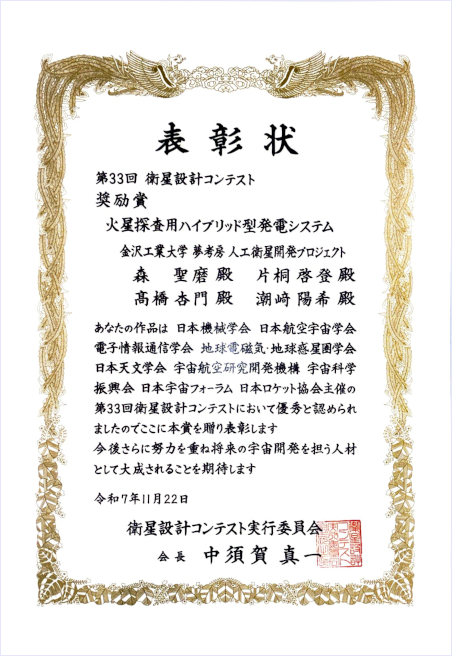 表彰状
第33回 衛星設計コンテスト
奨励賞
火星探査用ハイブリッド型発電システム
金沢工業大学 夢考房 人工衛星開発プロジェクト
森 聖磨 殿 片桐 啓登 殿
髙橋 杏門 殿 潮﨑 陽希 殿
あなたの作品は 日本機械学会 日本航空宇宙学会
電子情報通信学会 地球電磁気・地球惑星圏学会
日本天文学会 宇宙航空研究開発機構 宇宙科学
振興会 日本宇宙フォーラム 日本ロケット協会主催の
第33回衛星設計コンテストにおいて優秀と認められ
ましたのでここに本賞を贈り表彰します
今後さらに努力を重ね将来の宇宙開発を担う人材
として大成されることを期待します
令和7年11月22日
衛星設計コンテスト実行委員会
会長 中須賀 真一